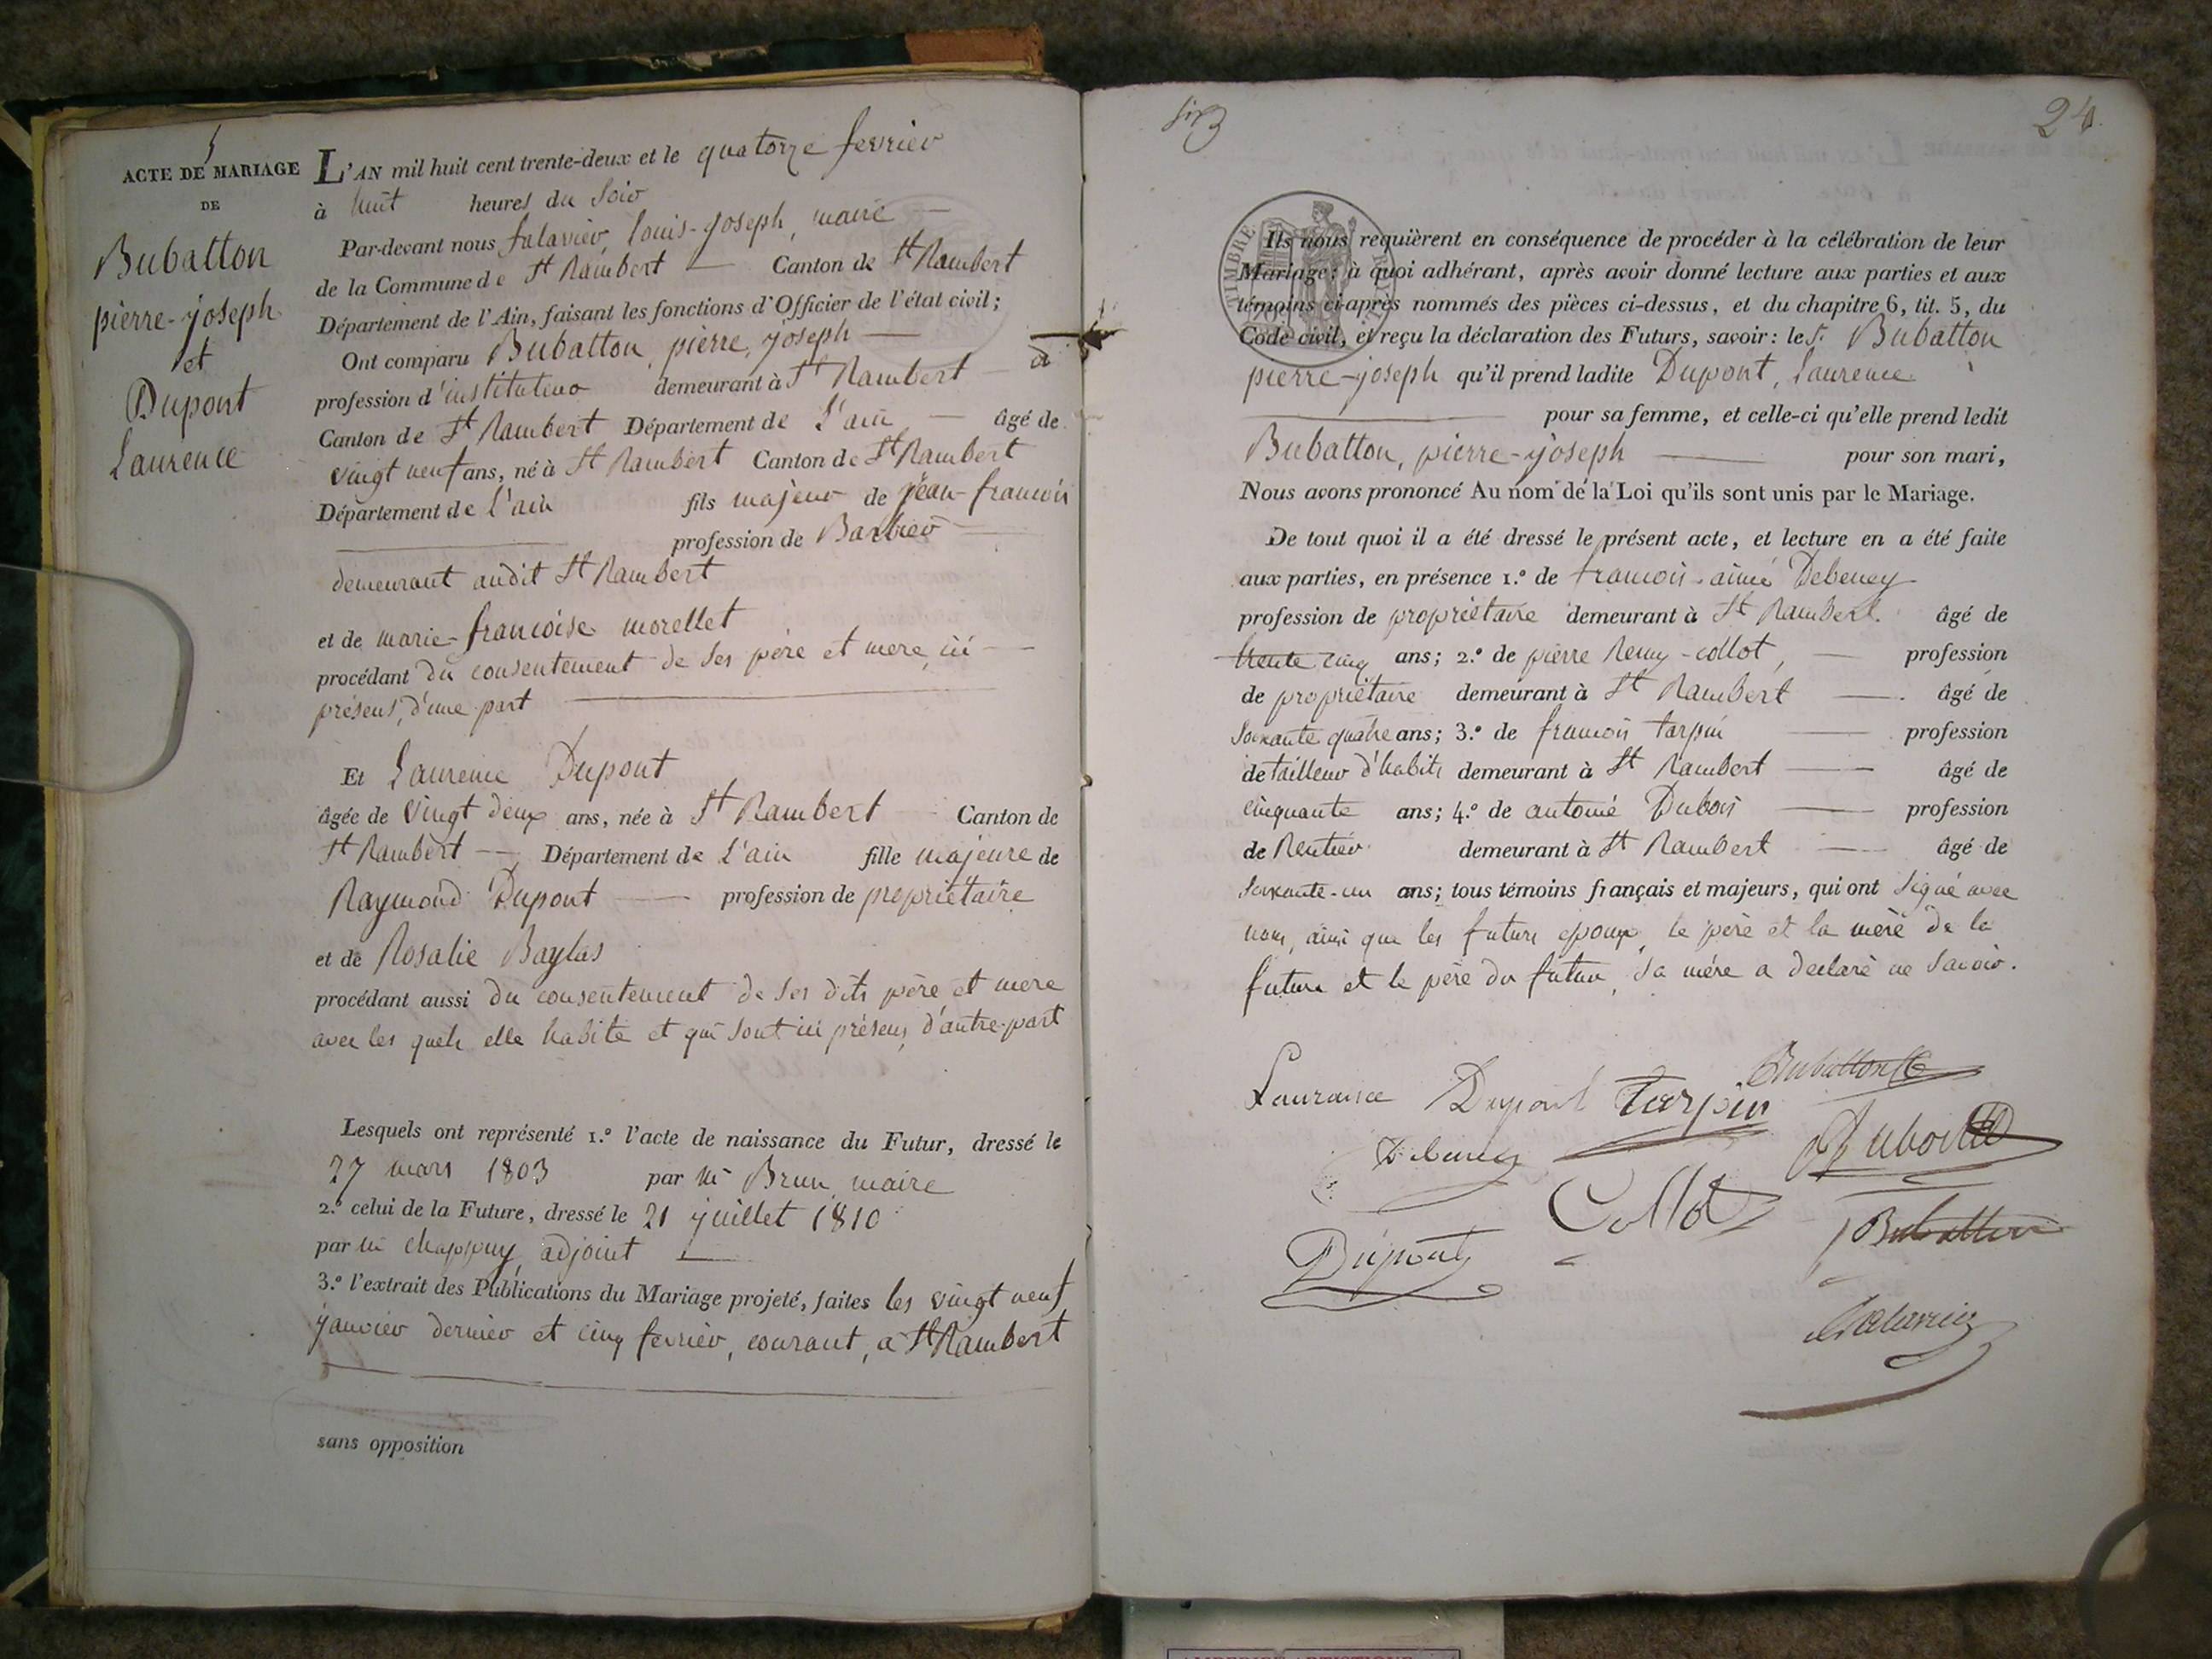 5
ACTE DE MARIAGE
DE
Bubatton
pierre-joseph
et
Dupont
Laurence
L'AN mil huit cent trente-deux et le quatorze fevrier
à huit heures du soir
Par-devant nous falavier, Louis-Joseph, maire
de la Commune de St Rambert Canton de St Rambert
Département de l'Ain, faisant les fonctions d'Officier de l'état civil;
Ont comparu Bubatton, pierre, joseph
profession d'instituteur demeurant à St Rambert
Canton de St Rambert Département de L'ain âgé de
vingt neuf ans, né à St Rambert Canton de St Rambert
Département de l'ain fils majeur de jean-francois
profession de Barbier
demeurant audit St Rambert
et de marie-francoise morellet
procédant du consentement de ses père et mere, ici
présens, d'une part
Et Laurence Dupont
âgée de vingt deux ans, née à St Rambert Canton de
St Rambert Département de L'ain fille majeure de
Raymond Dupont profession de propriétaire
et de Rosalie Baylas
procédant aussi du consentement de ses dits père et mere
avec les quels elle habite et qui sont ici présens, d'autre part
Lesquels ont représenté 1.º l'acte de naissance du Futur, dressé le
27 mars 1803 par mr Brun maire
2.º celui de la Future, dressé le 21 juillet 1810
par mr chappuy, adjoint
3.º l'extrait des Publications du Mariage projeté, faites les vingt neuf
janvier dernier et cinq fevrier, courant, a St Rambert
sans opposition
24
TIMBRE
Ils nous requièrent en conséquence de procéder à la célébration de leur
Mariage; à quoi adhérant, après avoir donné lecture aux parties et aux
témoins ci-après nommés des pièces ci-dessus, et du chapitre 6, tit. 5, du
Code civil, et reçu la déclaration des Futurs, savoir: le S. Bubatton
pierre-joseph qu'il prend ladite Dupont, Laurence
pour sa femme, et celle-ci qu'elle prend ledit
Bubatton, pierre-joseph pour son mari,
Nous avons prononcé Au nom de la Loi qu'ils sont unis par le Mariage.
De tout quoi il a été dressé le présent acte, et lecture en a été faite
aux parties, en présence 1.º de francois-aimé Debeney
profession de propriétaire demeurant à St Rambert. âgé de
trente cinq ans; 2.º de pierre Remy-collot, profession
de propriétaire demeurant à St Rambert âgé de
soixante quatre ans; 3.º de francois tarpin profession
de tailleur d'habits demeurant à St Rambert âgé de
cinquante ans; 4.º de antoine Dubois profession
de Rentier demeurant à St Rambert âgé de
soixante-un ans; tous témoins français et majeurs, qui ont signé avec
nous, ainsi que les futurs epoux, le père et la mère de la
future et le père du futur, sa mére a declaré ne savoir.
Laurance Dupont Tarpin Bubatton
Debeney Dubois
Collot
Dupont Bubatton
falavier